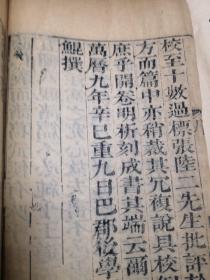 校至十數過標張陸二先生批評於
方而篇中亦稍裁其冗復說具校例
庶乎開卷明析刻成書其端云爾
萬曆九年辛巳重九日巴郡後學
鯤撰